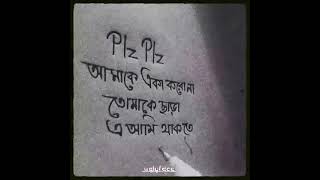 Plz Plz
আমাকে একা করোনা
তোমাকে ছাড়া
এ আমি থাকতে